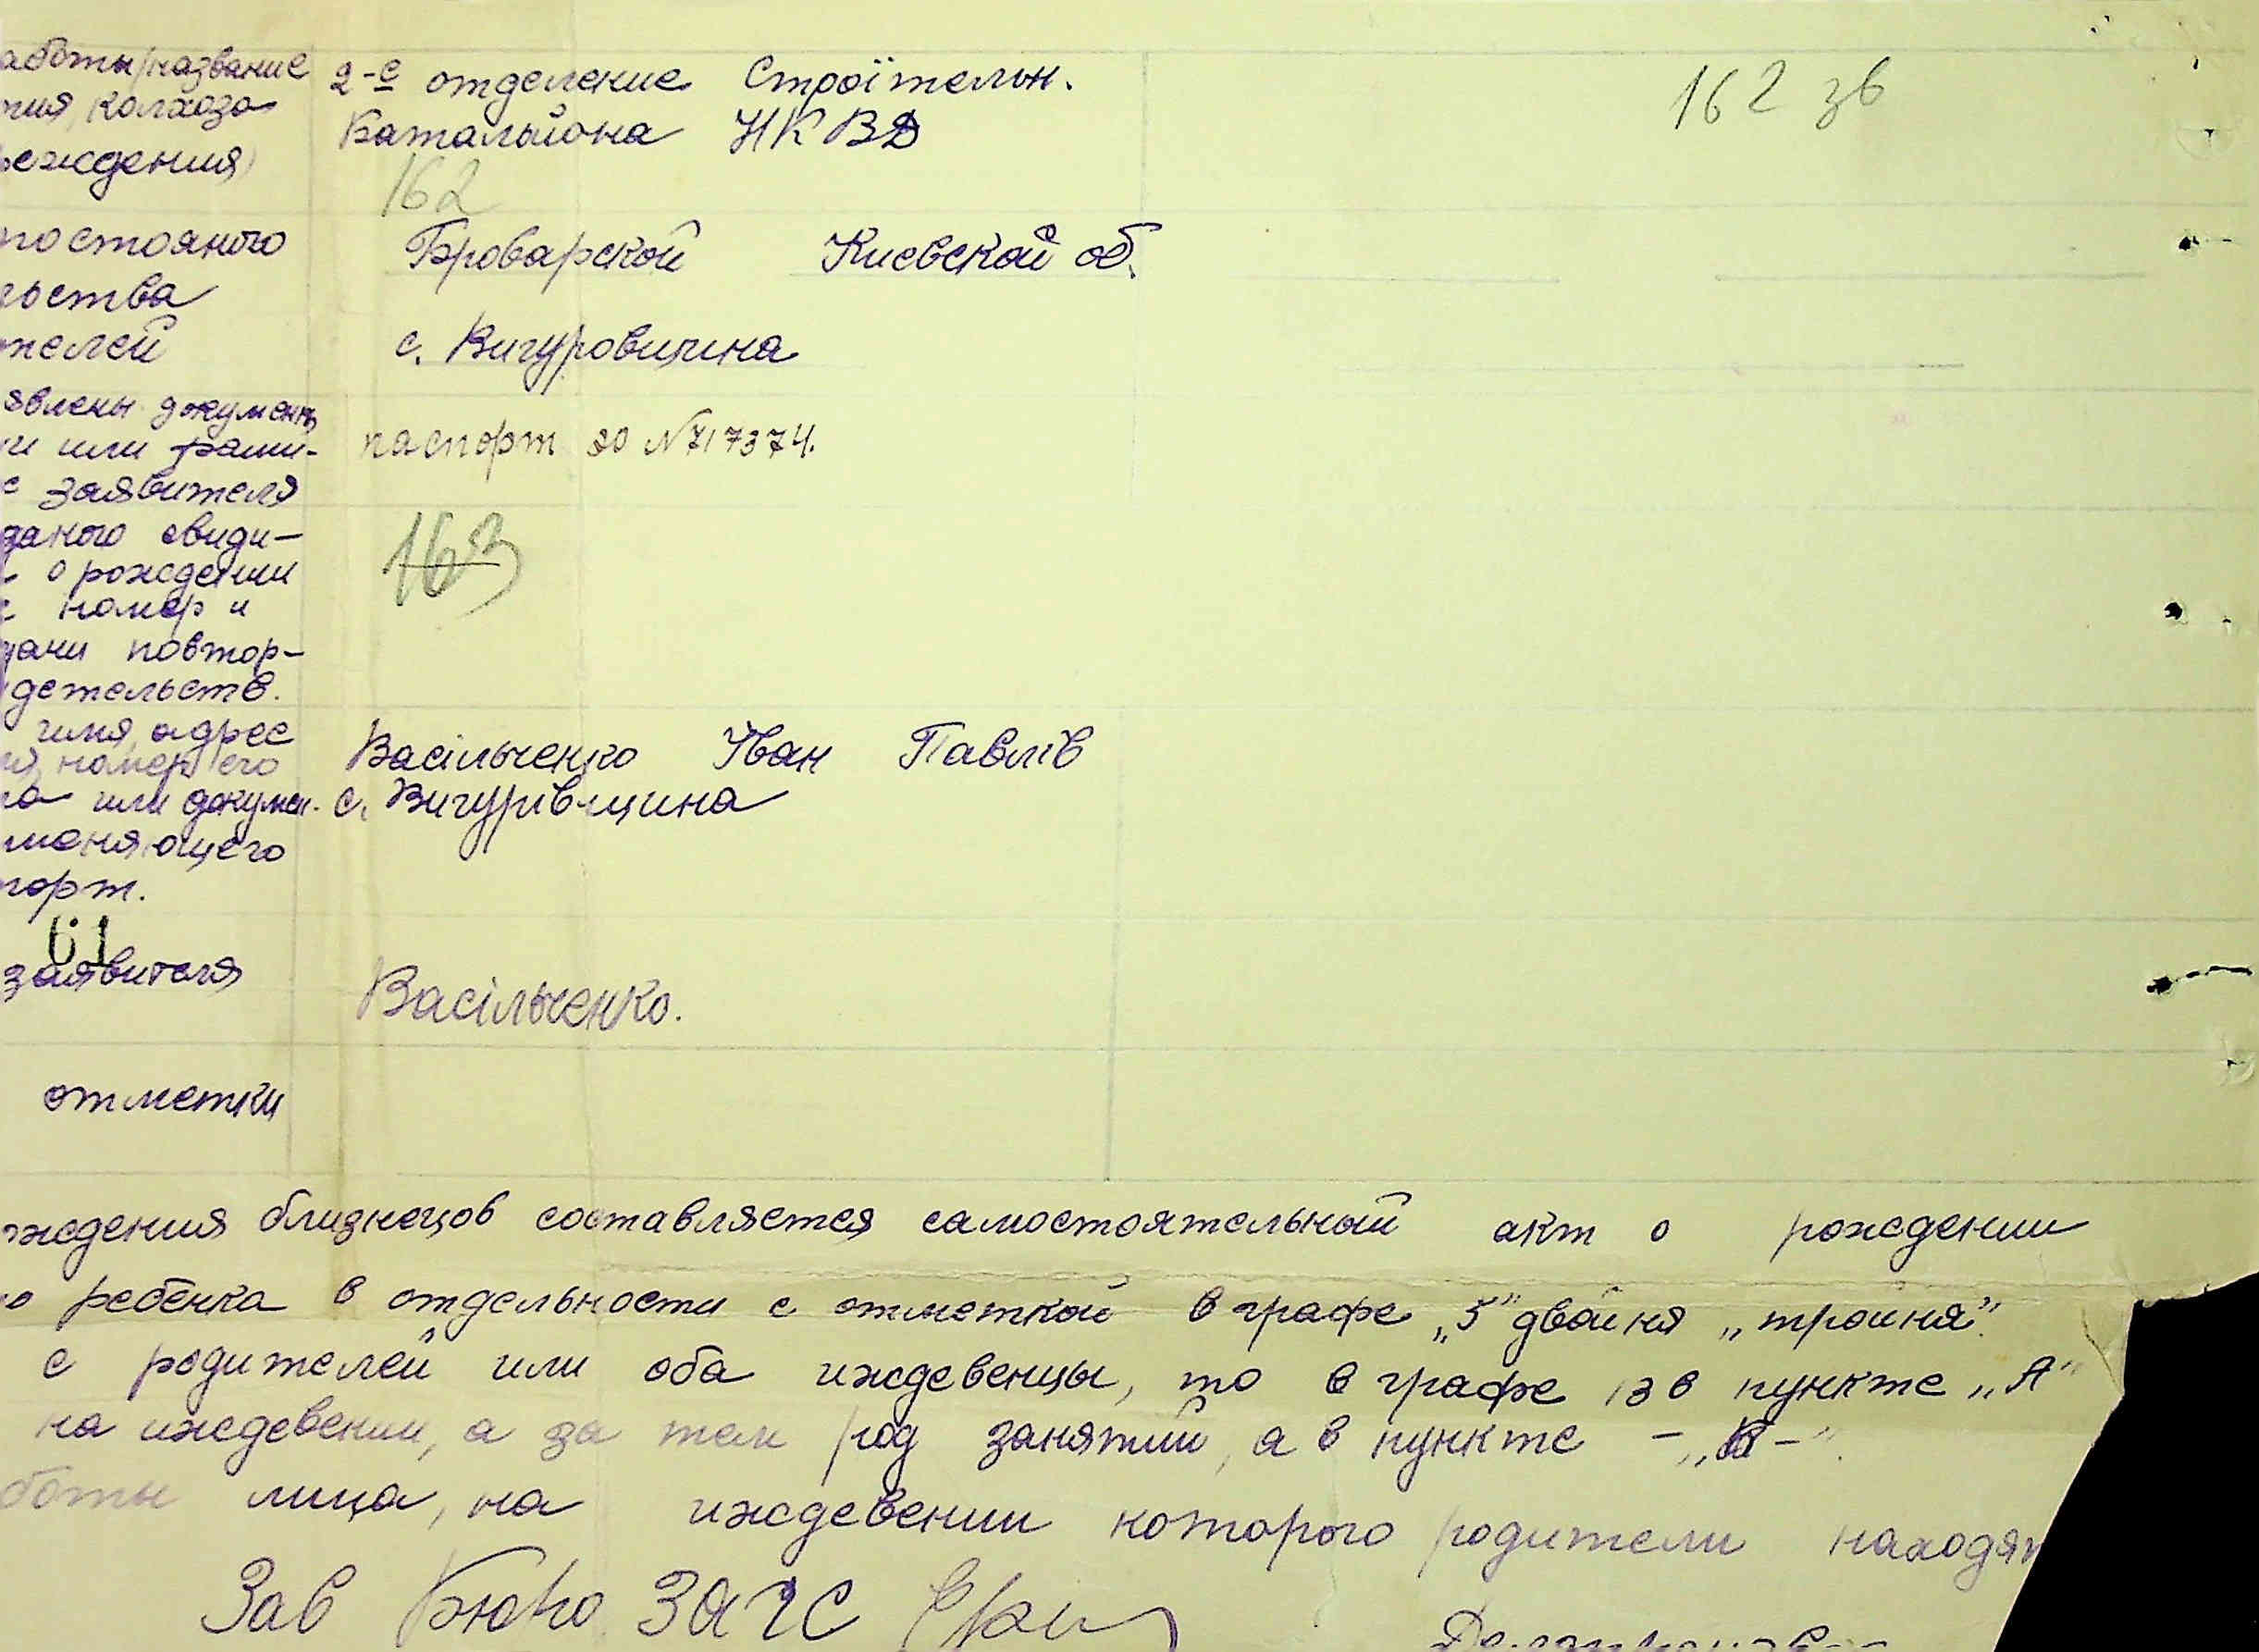 аботы/название 2-е отделение Строїтельн.
тия, колхоза Батальйона НКВД
162 зв
реждения)
162
постояного Броварской Киевской об.
льства
телей с. Вигуровщина
явлены документ
ки или фами- паспорт 20 N 717374.
с заявителя
даного свиди-
163
о рождении
номер и
дачи повтор-
детельств.
имя, адрес Васільченко Іван Павлів
номер его
или докумен. с. Вигурівщина
меняющего
порт.
61
заявителя Васільченко.
отметки
ождения близнецов составляется самостоятельный акт о рождении
го ребенка в отдельности с отметкой в графе „5" двойня „тройня".
с родителей или оба иждевенцы, то в графе 13 в пункте „А"
на иждевении, а за тем род занятий, а в пункте - „В -".
боты лица, на иждевении которого родители находят
Зав Бюро ЗАГС